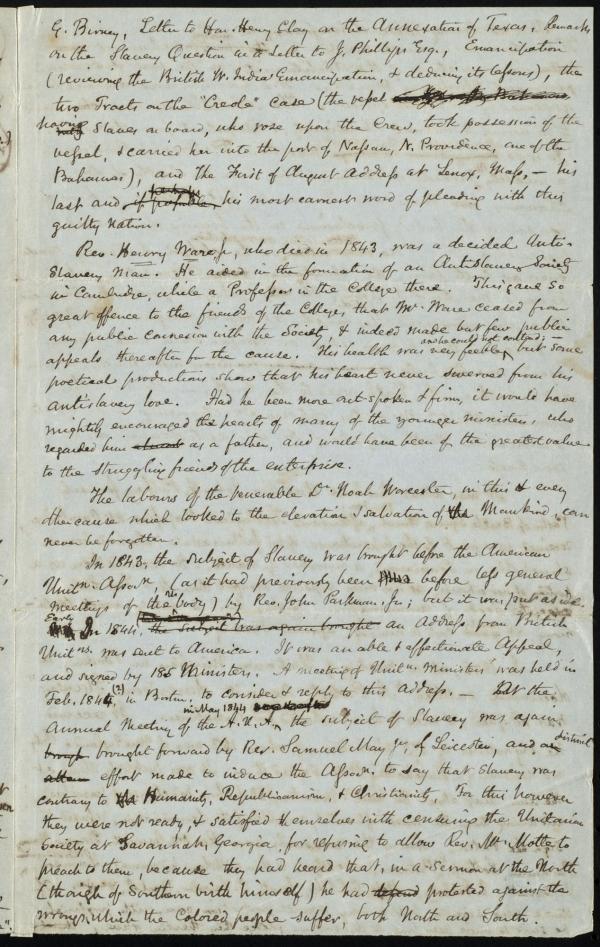 G. Birney, Letter to Hon. Henry Clay on the Annexation of Texas, Remarks
on the Slavery Question in a Letter to J. Phillips Esq., Emancipation
(reviewing the British W. India Emancipation, & deducing its lessons), the
two Tracts on the "Creole" case (the vessel
having Slaves on board, who rose upon the Crew, took possession of the
vessel, & carried her into the port of Nassau, N. Providence, one of the
Bahamas), and The First of August Address at Lenox, Mass, — his
last and, if possible, his most earnest word of pleading with this
guilty nation.
Rev. Henry Ware Jr, who died in 1843, was a decided Anti-
Slavery man. He aided in the formation of an AntiSlavery Society
in Cambridge, while a Professor in the College there. This gave so
great offence to the friends of the College, that Mr. Ware ceased from
any public connexion with the Society, & indeed made but few public
appeals thereafter for the cause. His health was very feeble, and he could not contend; — but some
poetical productions show that his heart never swerved from his
antislavery love. Had he been more out-spoken & firm, it would have
mightily encouraged the hearts of many of the younger ministers, who
regarded him almost as a father, and would have been of the greatest value
to the struggling friends of the enterprise.
The labours of the venerable Dr. Noah Worcester, in this & every
other cause which looked to the elevation & salvation of the Mankind, can
never be forgotten.
In 1843, the subject of Slavery was brought before the American
Unitn. Assocn. (as it had previously been before less general
meetings of the body) by Rev. John Parkman, Jr; but it was put aside.
Early In 1844, the subject was again brought an Address from British
Unitns. was sent to America. It was an able & affectionate Appeal,
and signed by 185 Ministers. A meeting of Unitn. Ministers was held in
Feb. 1844 (?), in Boston, to consider & reply to this Address. — At the
Annual Meeting of the A.U.A. in May 1844 the subject of Slavery was again
brough brought forward by Rev. Samuel May Jr, of Leicester, and an distinct
effort made to induce the Assocn. to say that Slavery was
contrary to Humanity, Republicanism, & Christianity. For this however
they were not ready, & satisfied themselves with censuring the Unitarian
Society at Savannah, Georgia, for refusing to allow Rev. Mr. Motte to
preach to them, because they had heard that, in a Sermon at the North
(though of Southern birth himself) he had protested against the
wrongs which the Colored people suffer, both North and South.